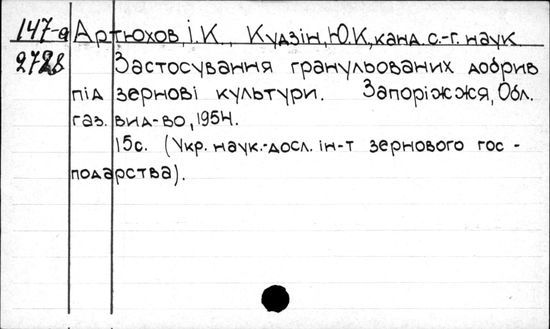 147-а Артюхов, І.К., Кудзін, Ю.К, канд. с.-г. наук
2728 Застосування гранульованих добрив
під зернові культури. Запоріжжя, Обл.
газ. вид-во, 1954.
15с. (Укр. наук.-досл. ін-т зернового гос-
подарства).